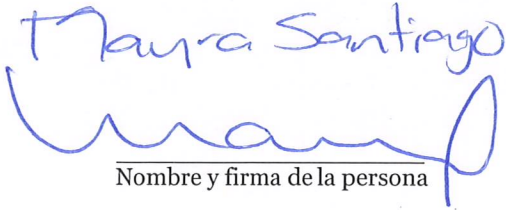 Mayra Santiago
Nombre y firma de la persona